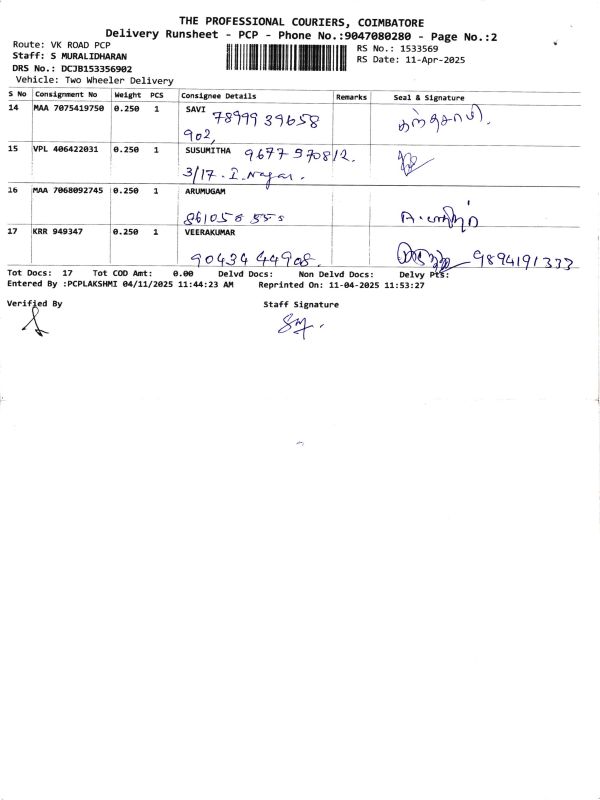 THE PROFESSIONAL COURIERS, COIMBATORE
Delivery Runsheet - PCP - Phone No.:9047080280 - Page No.:2
Route: VK ROAD PCP
Staff: S MURALIDHARAN
DRS No.: DCJB153356902
Vehicle: Two Wheeler Delivery
RS No.: 1533569
RS Date: 11-Apr-2025
S No Consignment No Weight PCS Consignee Details Remarks Seal & Signature
14 MAA 7075419750 0.250 1 SAVI
78999 39658
902,
கந்தசாமி.
15 VPL 406422031 0.250 1 SUSUMITHA 9677 970812.
3/17. I. Nagar.
16 MAA 7068092745 0.250 1 ARUMUGAM
17 KRR 949347 0.250 1 VEERAKUMAR
90434 44908.
9894191333
Tot Docs: 17 Tot COD Amt: 0.00 Delvd Docs: Non Delvd Docs: Delvy Pts:
Entered By :PCPLAKSHMI 04/11/2025 11:44:23 AM Reprinted On: 11-04-2025 11:53:27
Verified By Staff Signature